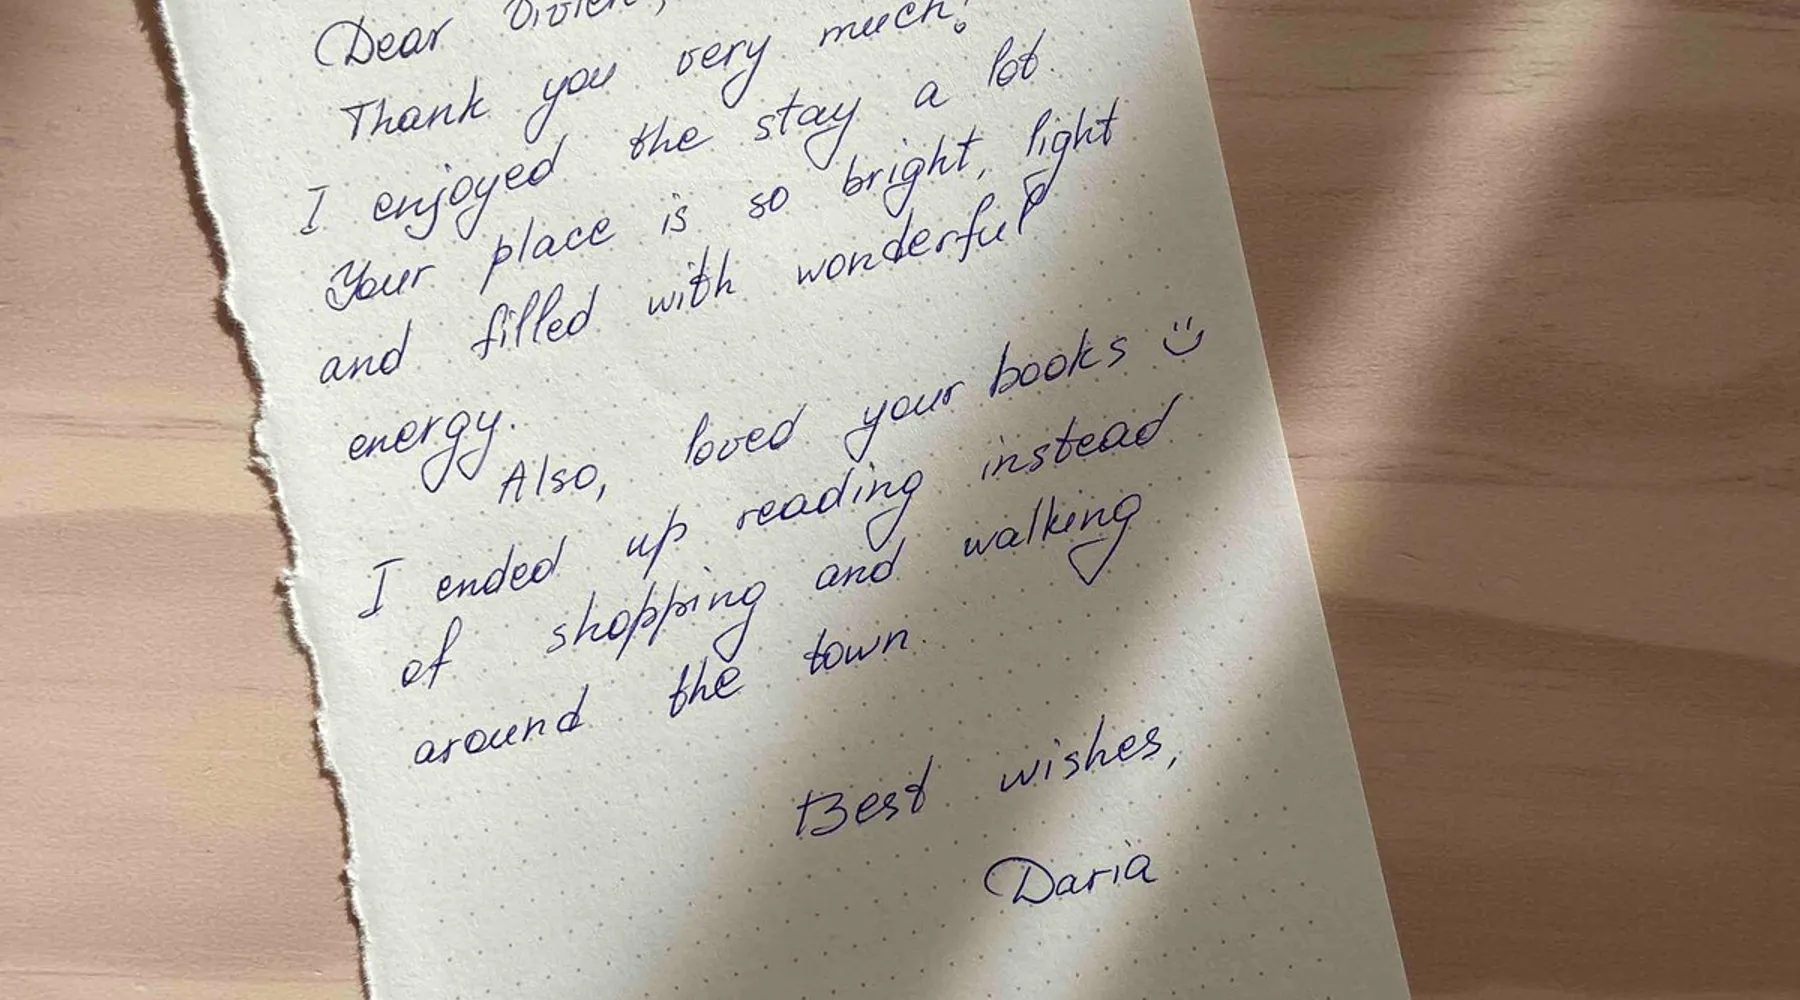 Dear
Thank you very much!
I enjoyed the stay a lot.
Your place is so bright, light
and filled with wonderful
energy.
Also, loved your books :)
I ended up reading instead
of shopping and walking
around the town.
Best wishes,
Daria